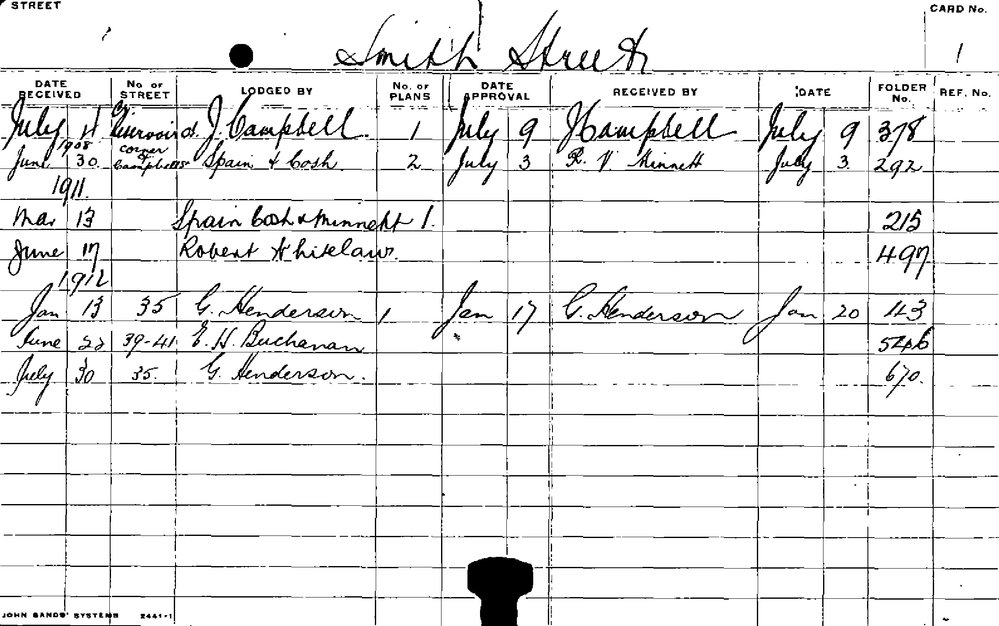 STREET CARD No.
Smith Street 1
DATE RECEIVED No. OF STREET LODGED BY No. OF PLANS DATE APPROVAL RECEIVED BY DATE FOLDER No. REF. No.
July 4 J. Campbell. 1 July 9 J Campbell July 9 378
1908 corner
June 30 Campbell Spain & Cosh. 2 July 3 R. V. Minnett July 3. 292
1911.
Mar 13 Spain Cosh & Minnett 1. 215
June 17 Robert Whitelaw. 497
1912
Jan 13 35 G. Henderson 1 Jan 17 G. Henderson Jan 20 43
June 22 39-41 E. H. Buchanan 546
July 30 35. G. Henderson. 670.
JOHN SANDS' SYSTEMS 2441-1